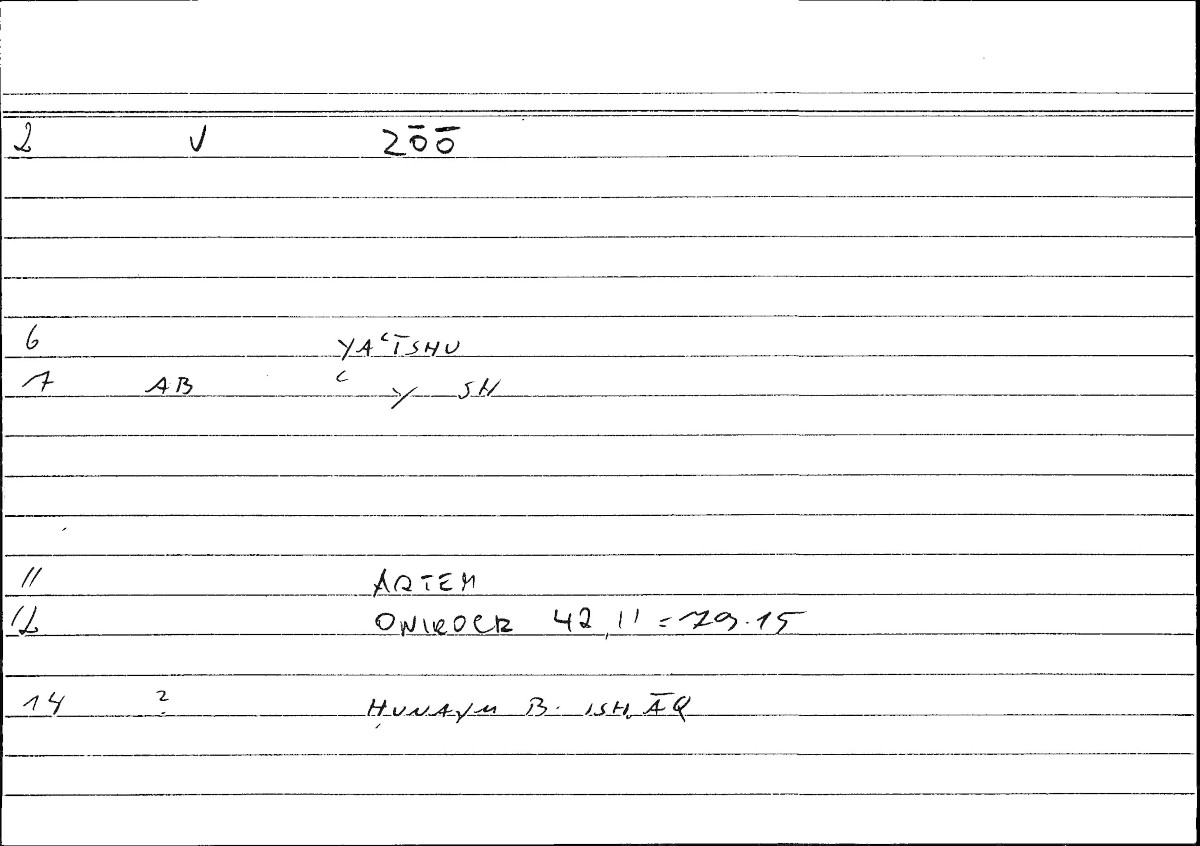 2 V 20̄0̄
6 YAʿĪSHU
7 AB ʿ Y SH
11 ARTEM
12 ONIROCR 42,11 = 79.15
14 ? ḤUNAYN B. ISḤĀQ